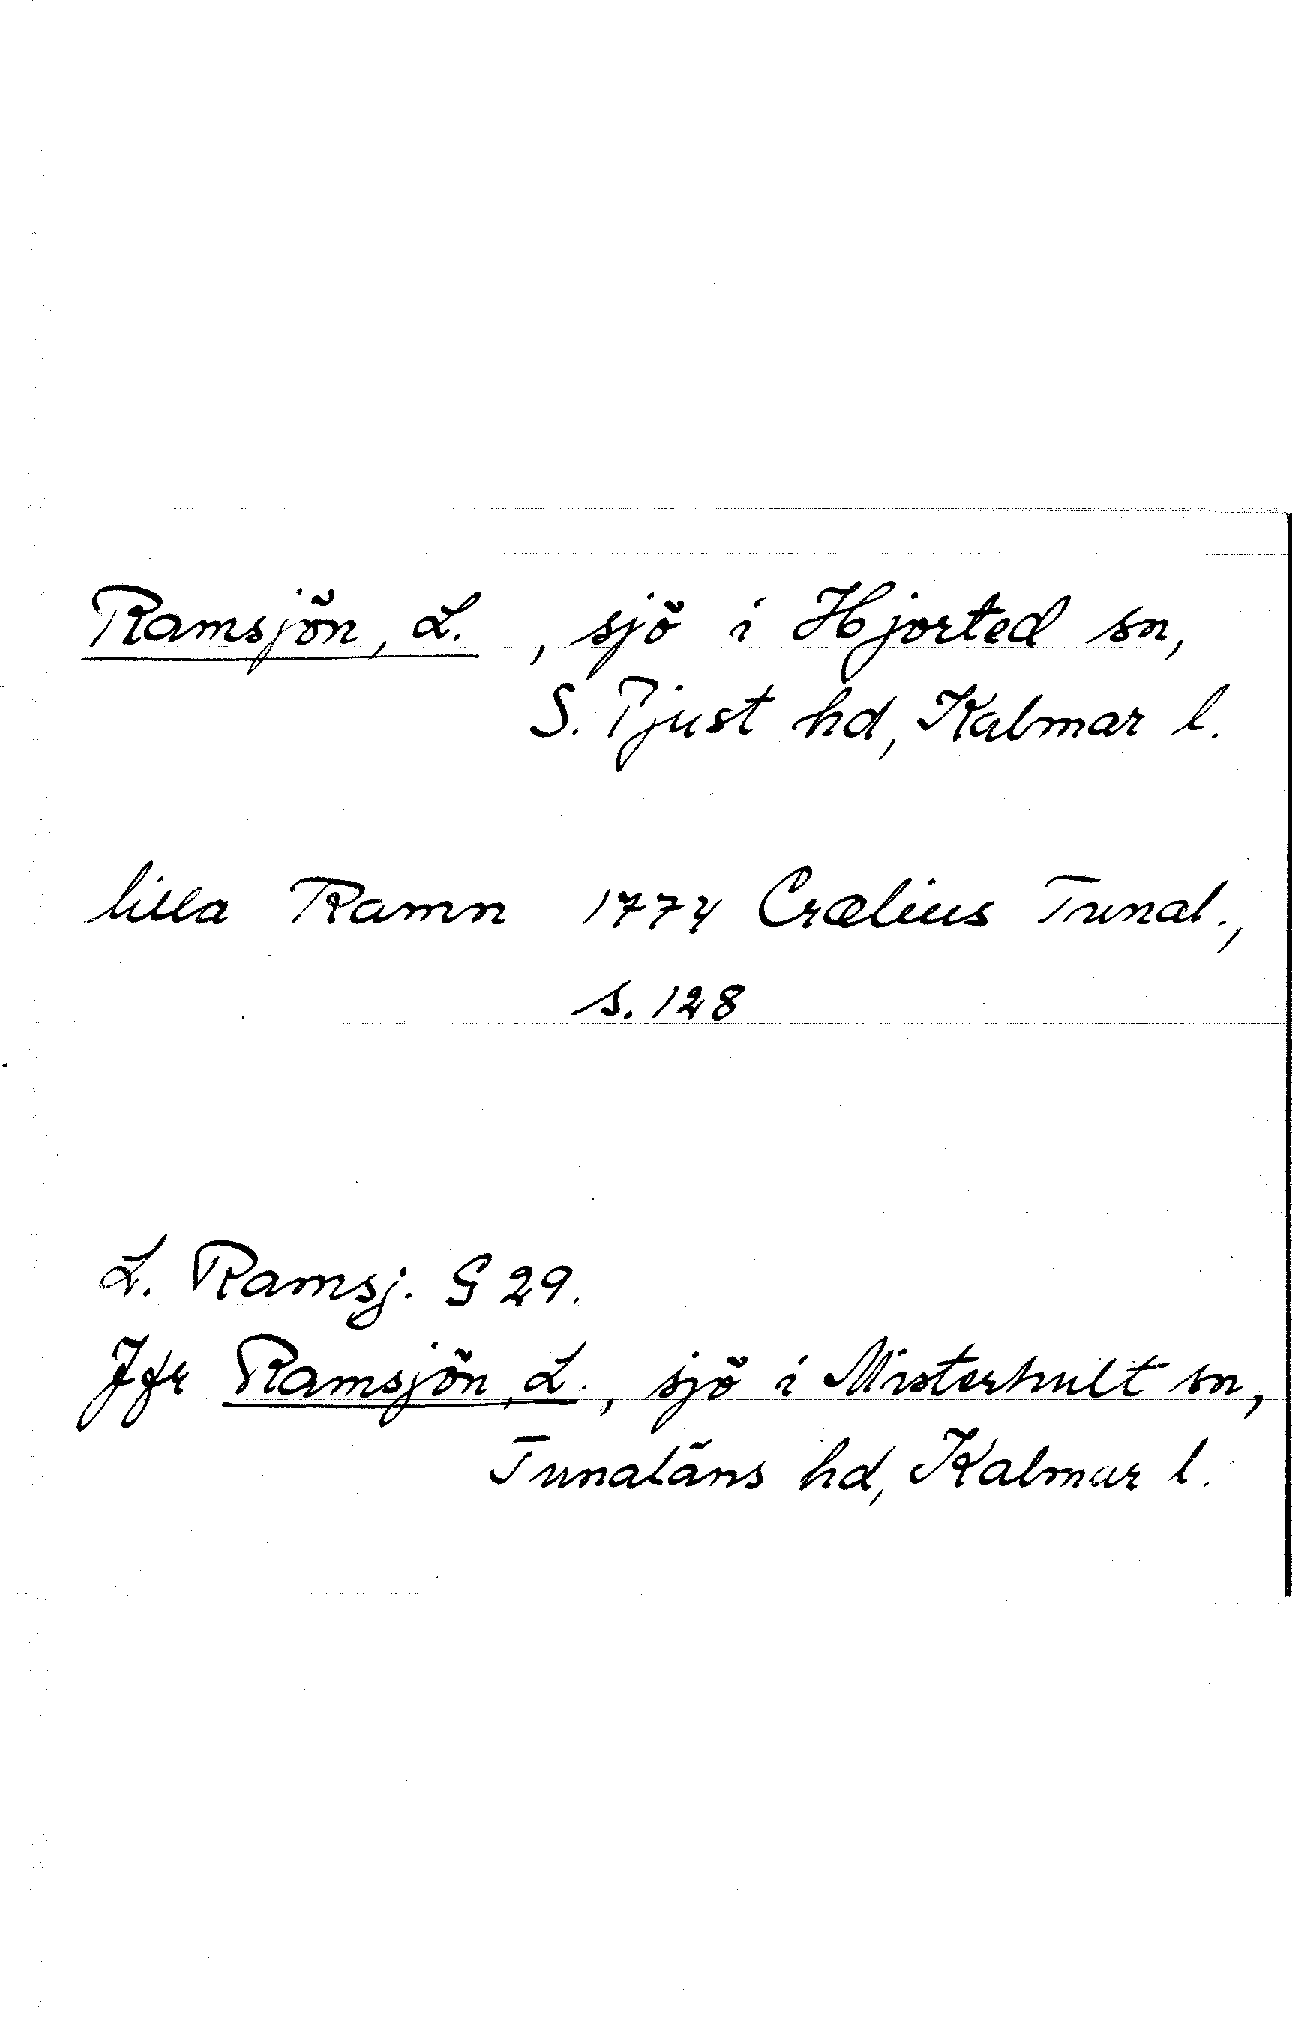 Ramsjön, L. , sjö i Hjorted sn,
S. Tjust hd, Kalmar l.
lilla Ramn 1774 Crælius Tunal.,
s. 128
L. Ramsj. G 29.
Jfr Ramsjön, L., sjö i Misterhult sn,
Tunaläns hd, Kalmar l.